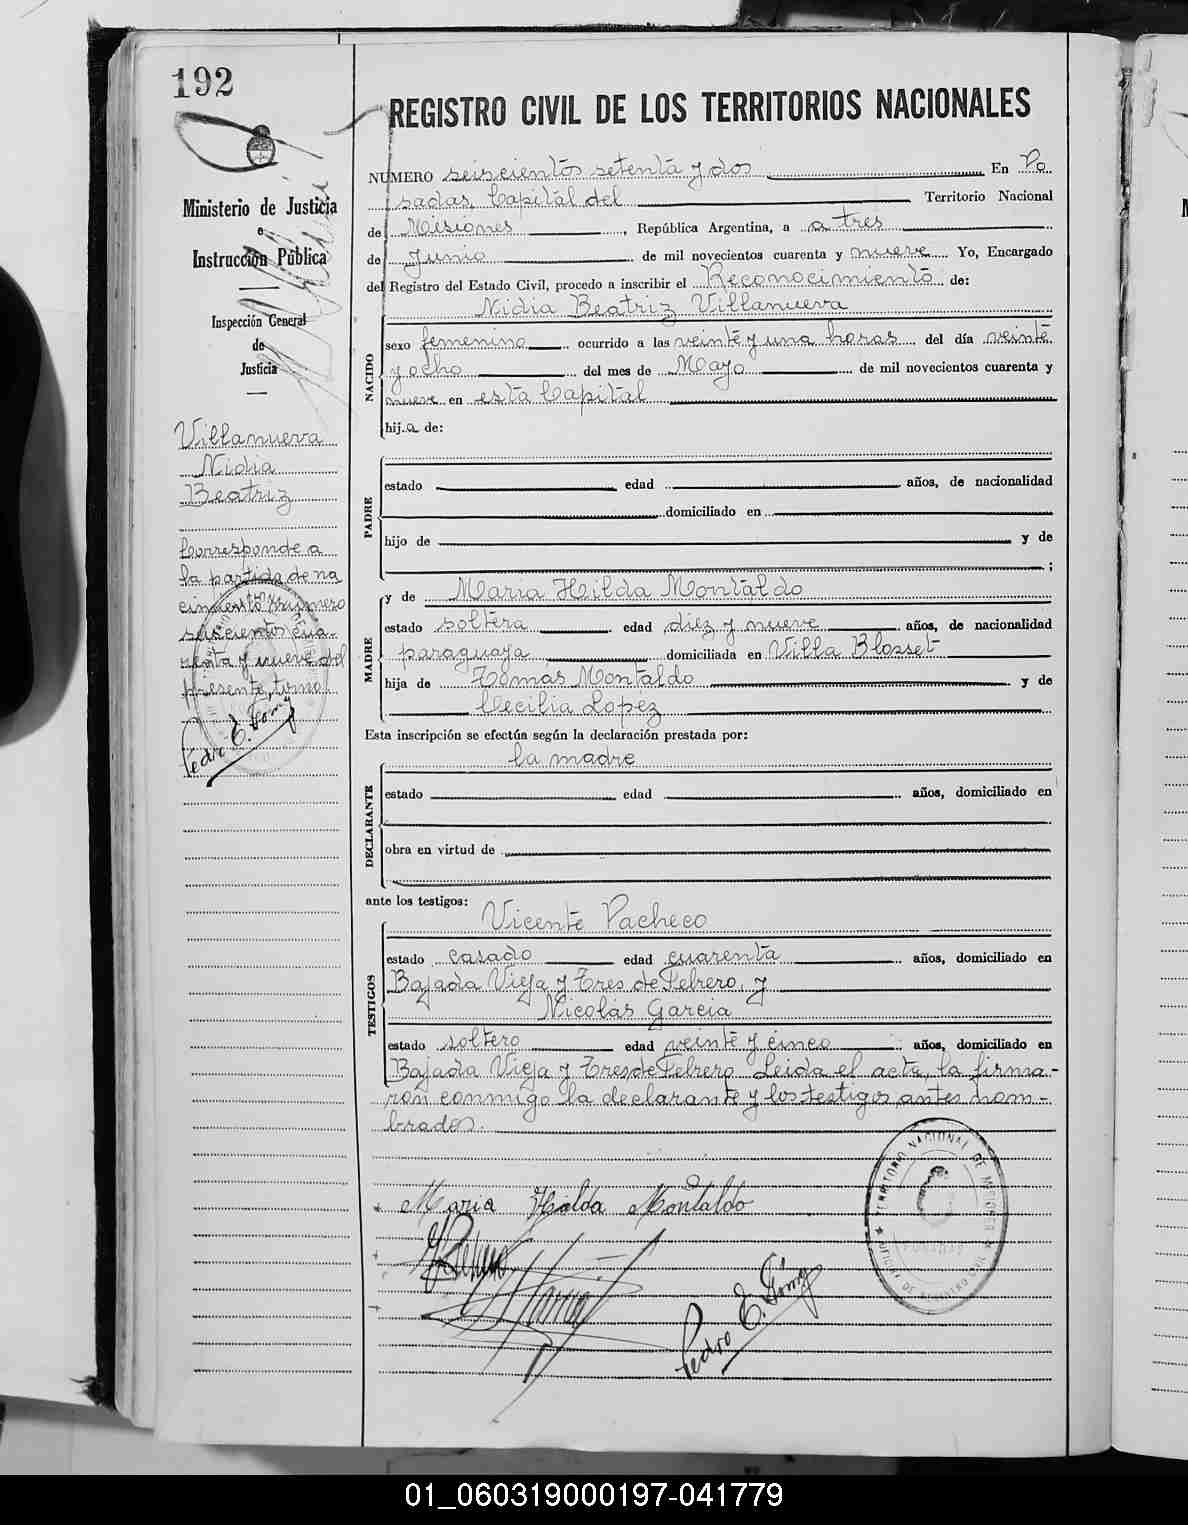 192
REGISTRO CIVIL DE LOS TERRITORIOS NACIONALES
Ministerio de Justicia
e
Instrucción Pública
Inspección General
de
Justicia
Villanueva
Nidia
Beatriz
Corresponde a
la partida de na
cimiento número
seiscientos cua-
renta y nueve del
presente tomo.
Pedro E.
NÚMERO seiscientos setenta y dos En Po
sadas, Capital del Territorio Nacional
de Misiones, República Argentina, a a tres
de Junio de mil novecientos cuarenta y nueve Yo, Encargado
del Registro del Estado Civil, procedo a inscribir el Reconocimiento de:
Nidia Beatriz Villanueva
NACIDO
sexo femenino ocurrido a las veinte y una horas del día veinte
y ocho del mes de Mayo de mil novecientos cuarenta y
nueve en esta Capital
hij.a de:
PADRE
estado edad años, de nacionalidad
domiciliado en
hijo de y de
;
MADRE
y de Maria Hilda Montaldo
estado soltera edad diez y nueve años, de nacionalidad
paraguaya domiciliada en Villa Blosset
hija de Tomas Montaldo y de
Cecilia Lopez
Esta inscripción se efectúa según la declaración prestada por:
la madre
DECLARANTE
estado edad años, domiciliado en
obra en virtud de
ante los testigos:
TESTIGOS
Vicente Pacheco
estado casado edad cuarenta años, domiciliado en
Bajada Vieja y Tres de Febrero, y
Nicolás Garcia
estado soltero edad veinte y cinco años, domiciliado en
Bajada Vieja y Tres de Febrero. Leida el acta, la firma-
ron conmigo la declarante y los testigos antes nom-
brados.
Maria Hilda Montaldo
Pedro E.
TERRITORIO NACIONAL DE MISIONES
OFICINA DE REGISTRO CIVIL
01_060319000197-041779